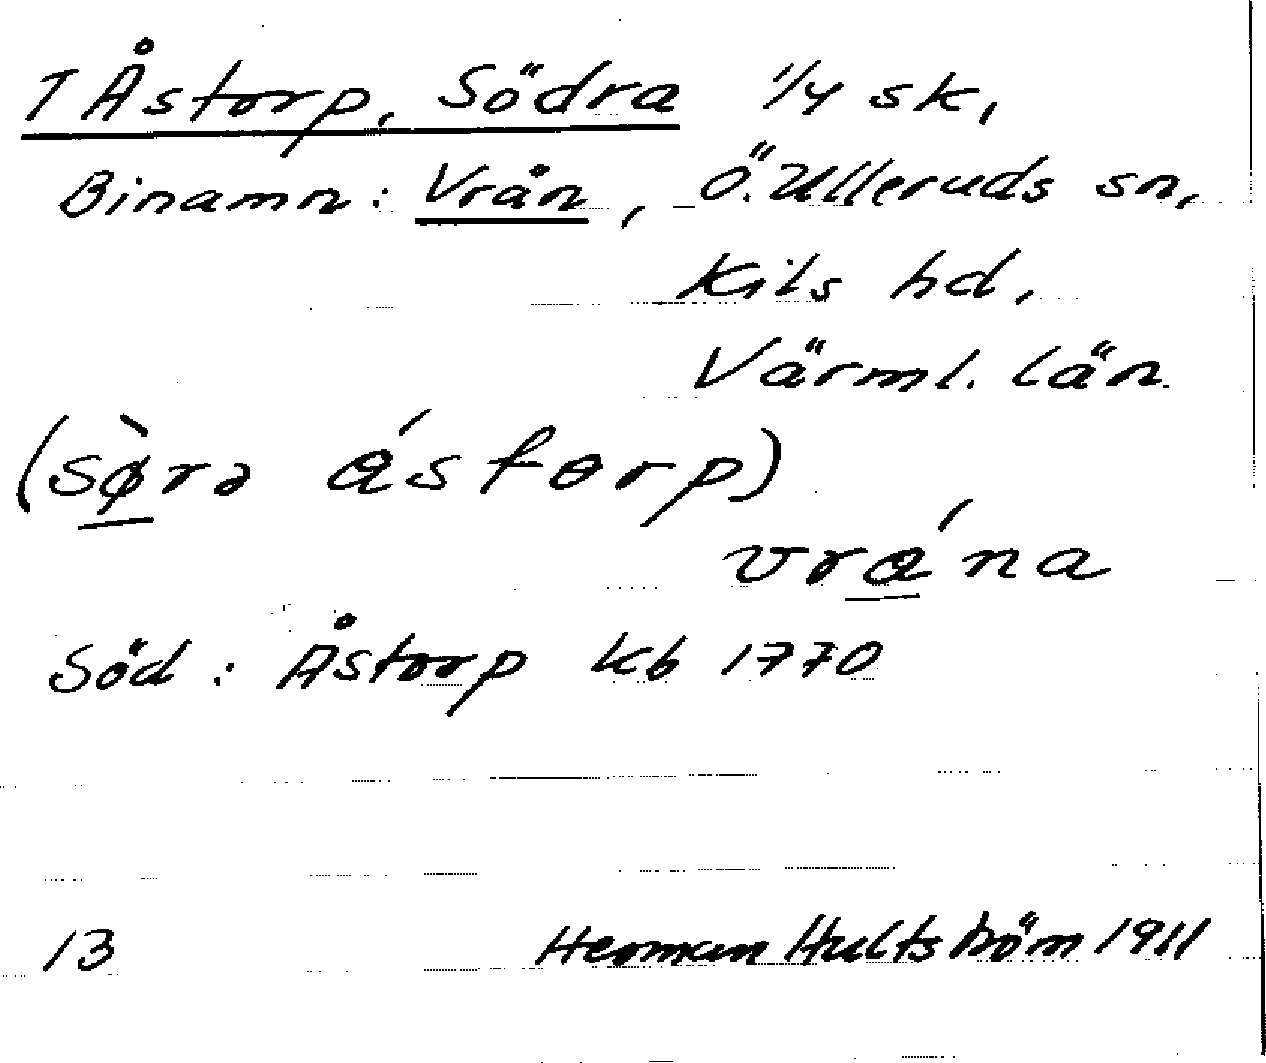 1 Åstorp, Södra 1/4 sk,
Binamn: Vrån, Ö. Ulleruds sn,
Kils hd,
Värml. län.
(sø̀rə ástorp)
vrána
Söd: Åstorp kb 1770
13 Herman Hultström 1911